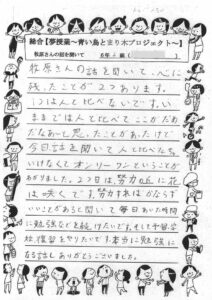 総合【夢授業～青い鳥ととまり木プロジェクト～】
牧原さんの話を聞いて　6年　組（　　）
牧原さんの話を聞いて、心に
残ったことが2つあります。
1つは人と比べないです。い
ままでは人と比べてここがだめ
だなあと思ったことがあったけど
今日話を聞いて人と比べたら
いけなくてオンリーワンということが
わかりました。2つ目は、努力の丘に花
は咲くです。努力すればかならず
いいことがあると聞いて毎日あいた時間
に勉強などを続けたいです。そして予習
復習をやりたいです。本当に勉強に
なる話しありがとうございました。